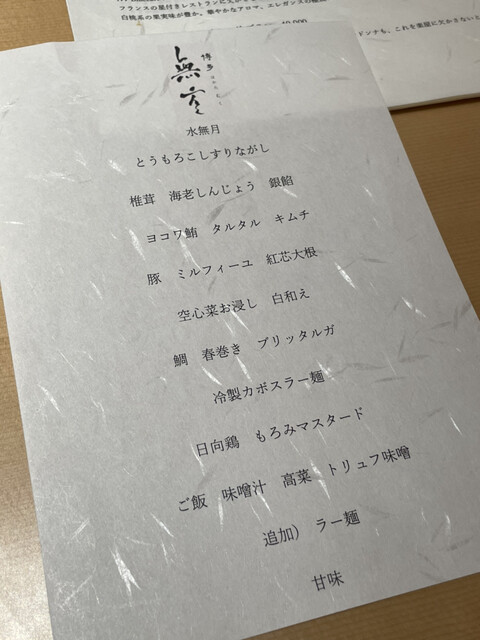 フランスの星付きレストランに
白桃系の果実味が豊か。華やかなアロマ、エレガンスの
10,000
ドンナも、これを楽屋に欠かさないと
博多
無
水無月
とうもろこしすりながし
椎茸 海老しんじょう 銀餡
ヨコワ鮪 タルタル キムチ
豚 ミルフィーユ 紅芯大根
空心菜お浸し 白和え
鯛 春巻き ブリッタルガ
冷製カボスラー麺
日向鶏 もろみマスタード
ご飯 味噌汁 高菜 トリュフ味噌
追加） ラー麺
甘味